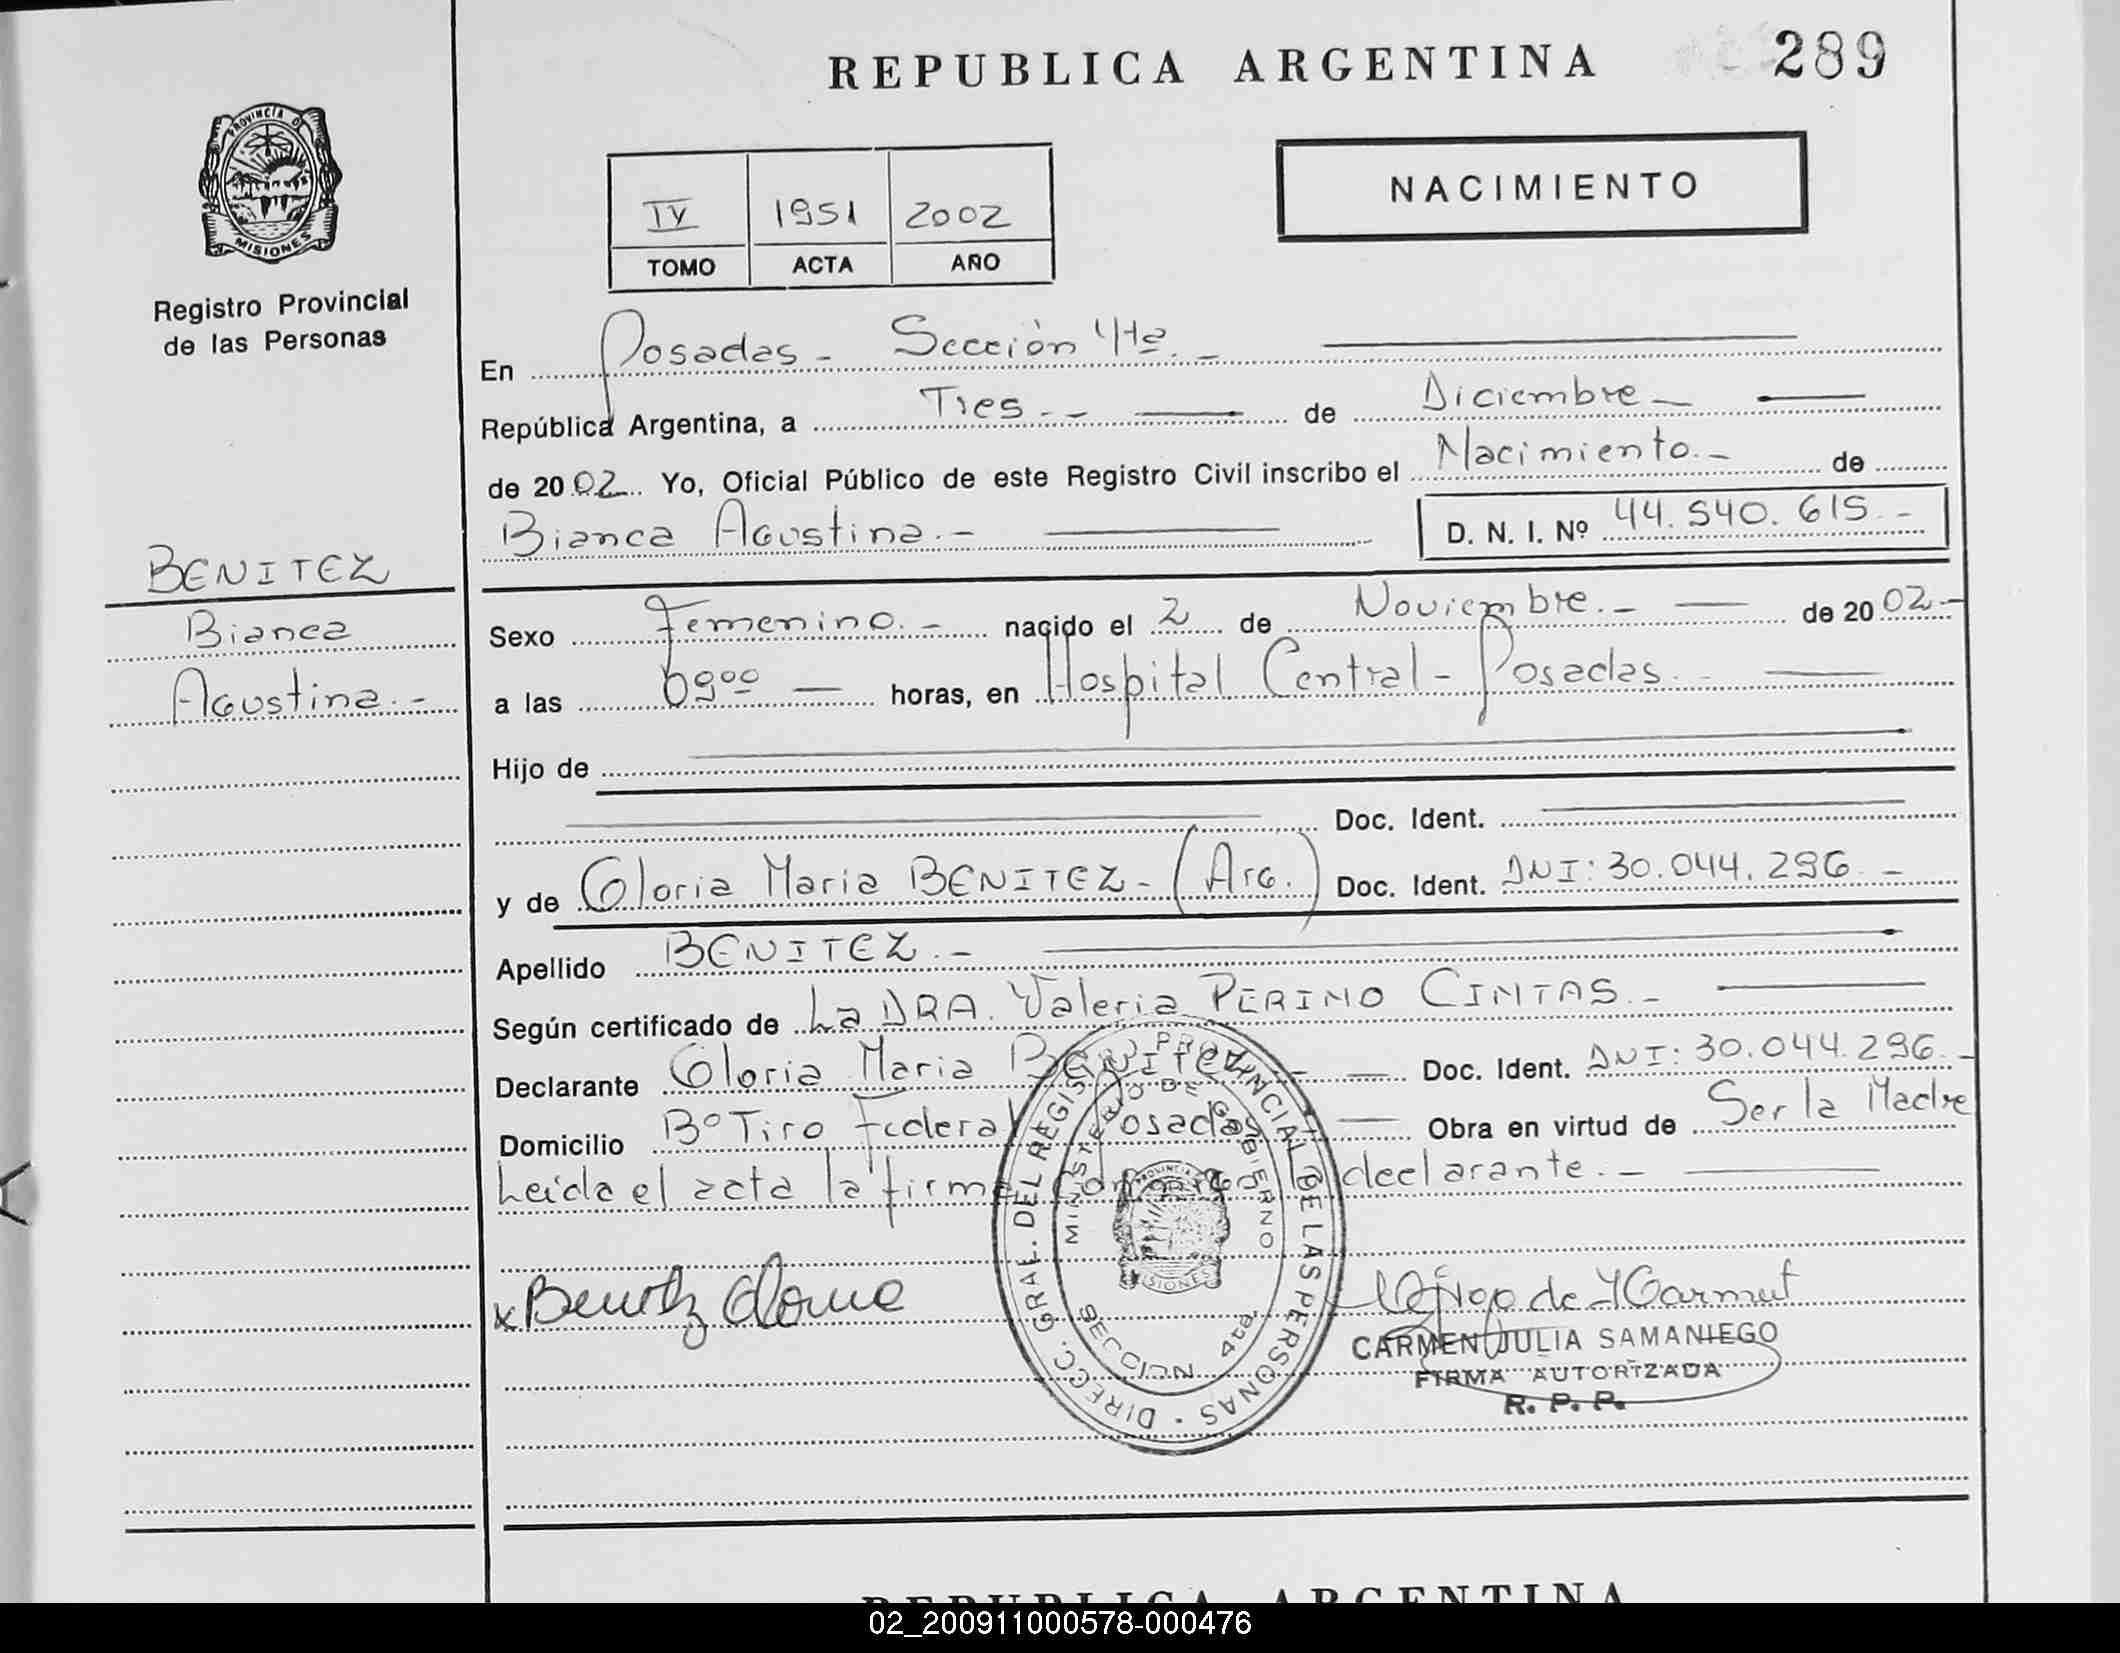 REPUBLICA ARGENTINA 289
PROVINCIA D
MISIONES
Registro Provincial
de las Personas
IV 1951 2002
TOMO ACTA AÑO
NACIMIENTO
En Posadas - Sección 4ta. -
República Argentina, a Tres - de Diciembre -
de 2002 Yo, Oficial Público de este Registro Civil inscribo el Nacimiento. - de
Bianca Agustina. - D. N. I. Nº 44.540.615. -
BENITEZ
Bianca
Agustina. -
Sexo Femenino. - nacido el 2 de Noviembre. - de 2002 -
a las 09⁰⁰ horas, en Hospital Central - Posadas. -
Hijo de
Doc. Ident.
y de Gloria Maria BENITEZ - (Arg.) Doc. Ident. DNI: 30.044.296. -
Apellido BENITEZ. -
Según certificado de La DRA. Valeria PERINO CINTAS. -
Declarante Gloria Maria BENITEZ - Doc. Ident. DNI: 30.044.296. -
Domicilio Bº Tiro Federal Posadas Obra en virtud de Ser la Madre
Leida el acta la firma conmigo la declarante. -
DIRECC. GRAL. DEL REGISTRO PROVINCIAL DE LAS PERSONAS
MINISTERIO DE GOBIERNO
PROVINCIA
MISIONES
SECCION 4ta.
x Benitez Gloria
CARMEN JULIA SAMANIEGO
FIRMA AUTORIZADA
R. P. P.
REPUBLICA ARGENTINA
02_200911000578-000476